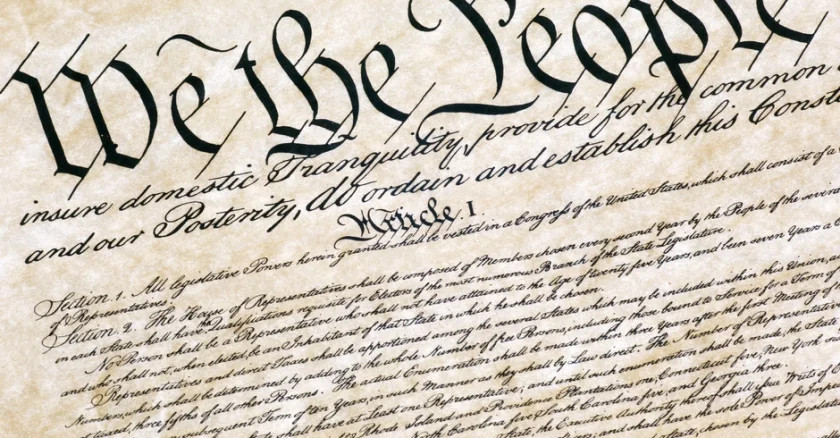 We the People
insure domestic Tranquility, provide for the common
and our Posterity, do ordain and establish this Const
Article I.
Section. 1. All legislative Powers herein granted shall be vested in a Congress of the United States, which shall consist of a
of Representatives.
Section. 2. The House of Representatives shall be composed of Members chosen every second Year by the People of the several
in each State shall have the Qualifications requisite for Electors of the most numerous Branch of the State Legislature.
No Person shall be a Representative who shall not have attained to the Age of twenty five Years, and been seven Years a C
and who shall not, when elected, be an Inhabitant of that State in which he shall be chosen.
Representatives and direct Taxes shall be apportioned among the several States which may be included within this Union, a
Numbers, which shall be determined by adding to the whole Number of free Persons, including those bound to Service for a Term of
taxed, three fifths of all other Persons. The actual Enumeration shall be made within three Years after the first Meeting of
subsequent Term of ten Years, in such Manner as they shall by Law direct. The Number of Representat
shall have at Least one Representative; and until such enumeration shall be made, the State
Rhode Island and Providence Plantations one, Connecticut five, New York
North Carolina five, South Carolina five, and Georgia three.
State, the Executive Authority thereof shall issue Writs of
shall have the sole Power of Imp
chosen by the Legislatu